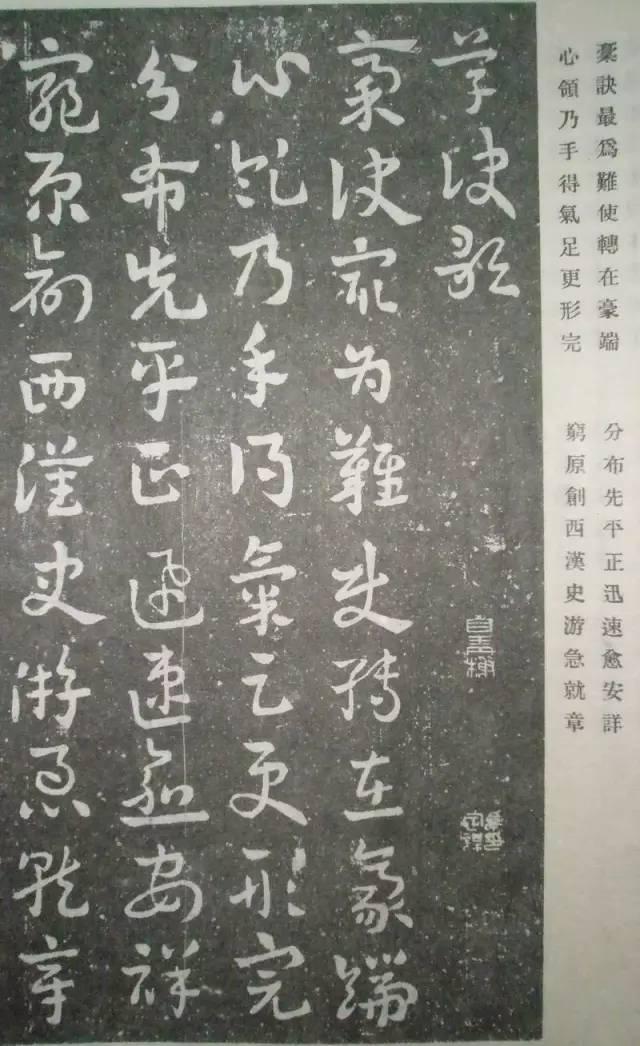 稾訣最爲難使轉在豪端
心領乃手得氣足更形完
分布先平正迅速愈安詳
窮原創西漢史游急就章
草訣歌
稾訣最爲難使轉在豪端
心領乃手得氣足更形完
分布先平正迅速愈安祥
窮原創西漢史游急就章